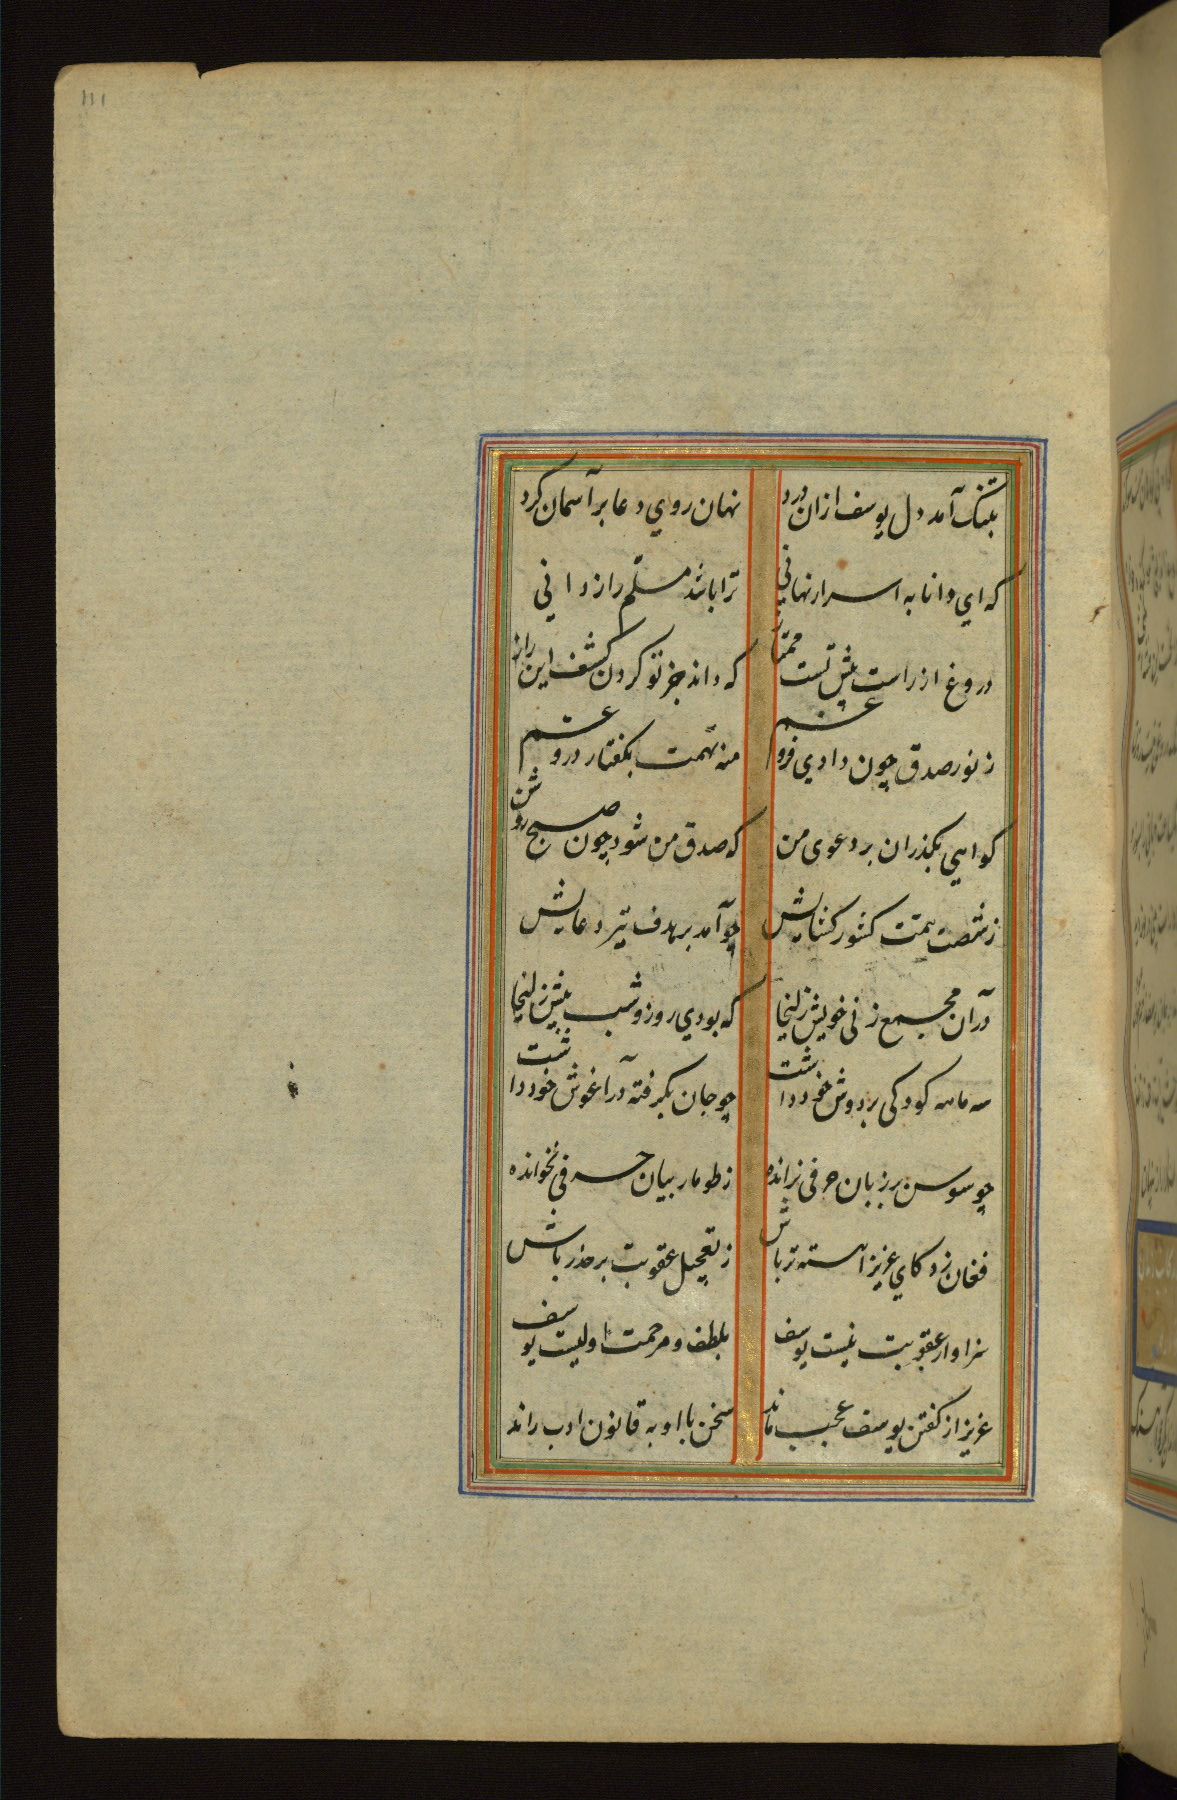 بتنگ آمد دل یوسف ازان درد نهان روی دعا بر آسمان کرد
که ای دانا به اسرار نهانی ترا باشد مسلم راز دانی
دروغ از راست پیش تست ممتاز که داند جز تو کردن کشف این راز
ز نور صدق چون دادی فروغم منه تهمت بکفتار دروغم
کواهی بکذران بر دعوی من که صدق من شود چون صبح روشن
ز شصت همت کشور کشایش چو آمد بر هدف تیر دعایش
در آن مجمع زنی خویش زلیخا که بودی روز و شب پیش زلیخا
سه ماهه کودکی بر دوش خود داشت چو جان بکرفته در آغوش خود داشت
چو سوسن بر زبان حرفی نرانده ز طومار بیان حرفی نخوانده
فغان زد کای عزیز آهسته تر باش ز تعجیل عقوبت بر حذر باش
سزاوار عقوبت نیست یوسف بلطف و مرحمت اولیست یوسف
عزیز از کفتن یوسف عجب ماند سخن با او به قانون ادب راند